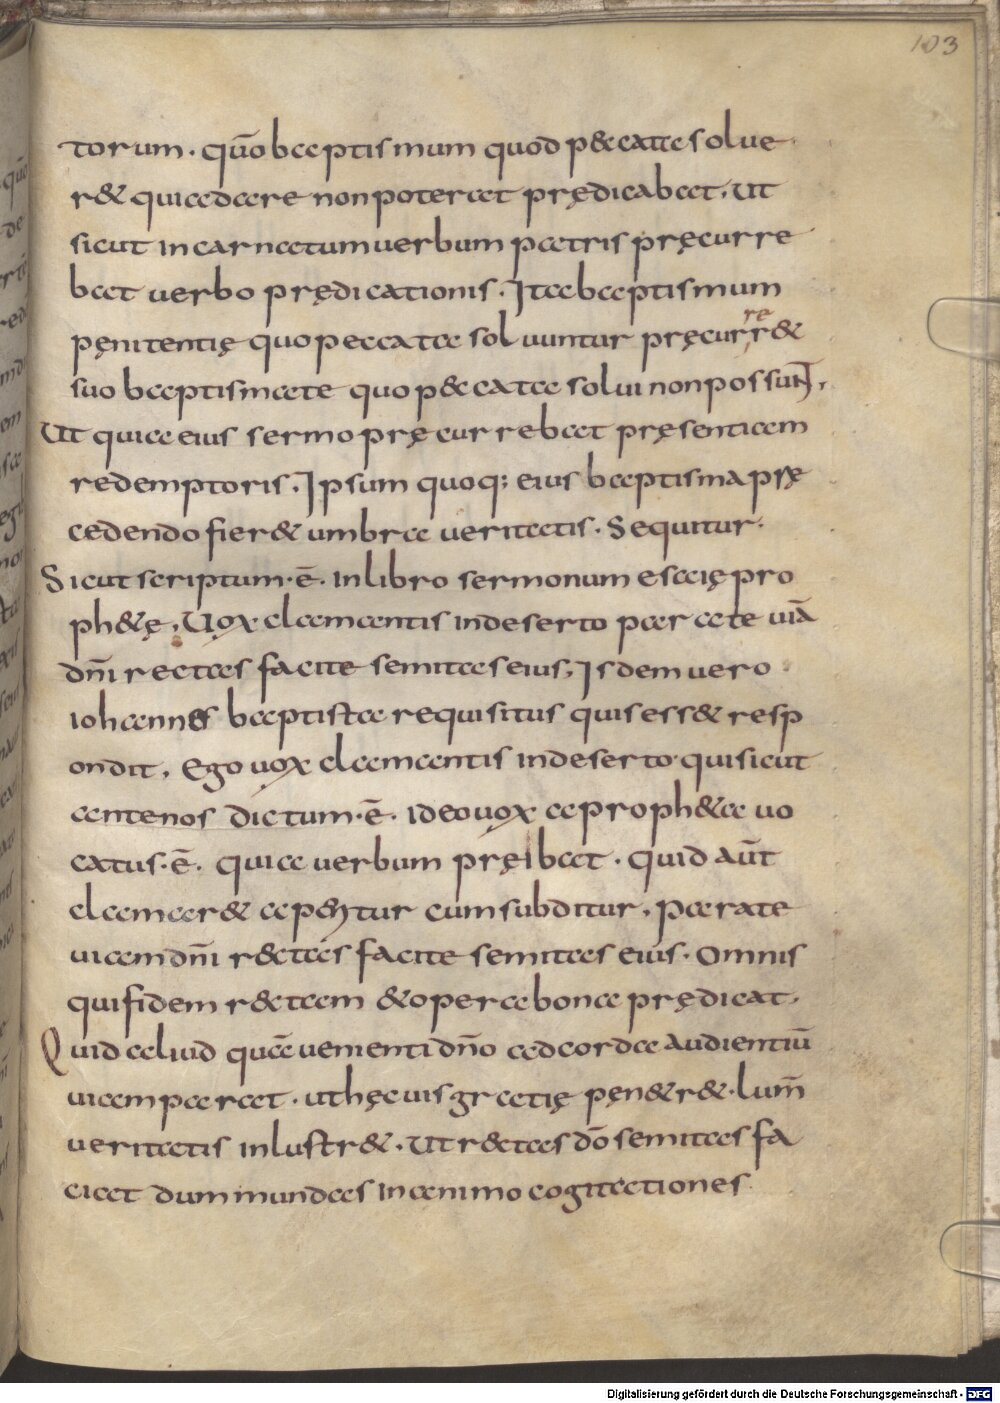 103
torum. quō baptismum quod p&cata solue
r& quia dare non poterat prędicabat. Ut
sicut incarnatum uerbum patris pręcurre
bat uerbo prędicationis. Ita baptismum
pęnitentię quo peccata soluuntur pręcurrer&
suo baptismate quo p&cata solui non possunt,
Ut quia eius sermo pręcurrebat pręsentiam
redemptoris. Ipsum quoq; eius baptisma prę
cedendo fier& umbra ueritatis. Sequitur.
Sicut scriptum.ē. in libro sermonum esaię pro
ph&ę. Uox clamantis in deserto parate uiā
dñi rectas facite semitas eius, Isdem uero
iohannes baptista requisitus quis ess& resp
ondit, Ego uox clamantis in deserto qui sicut
a nobis dictum.ē. ideo uox a proph&a uo
catus.ē. quia uerbum pręibat. quid aūt
clamar& aperitur cum subditur, Parate
uiam dñi r&tas facite semitas eius. Omnis
qui fidem r&tam & opera bona prędicat,
Quid aliud quā uenienti dño ad corda audientiū
uiam parat. ut hęc uis gratię pen&r&. lum̄
ueritatis inlustr&. Ut r&tas dō semitas fa
ciat dum mundas in animo cogitationes
Digitalisierung gefördert durch die Deutsche Forschungsgemeinschaft - DFG